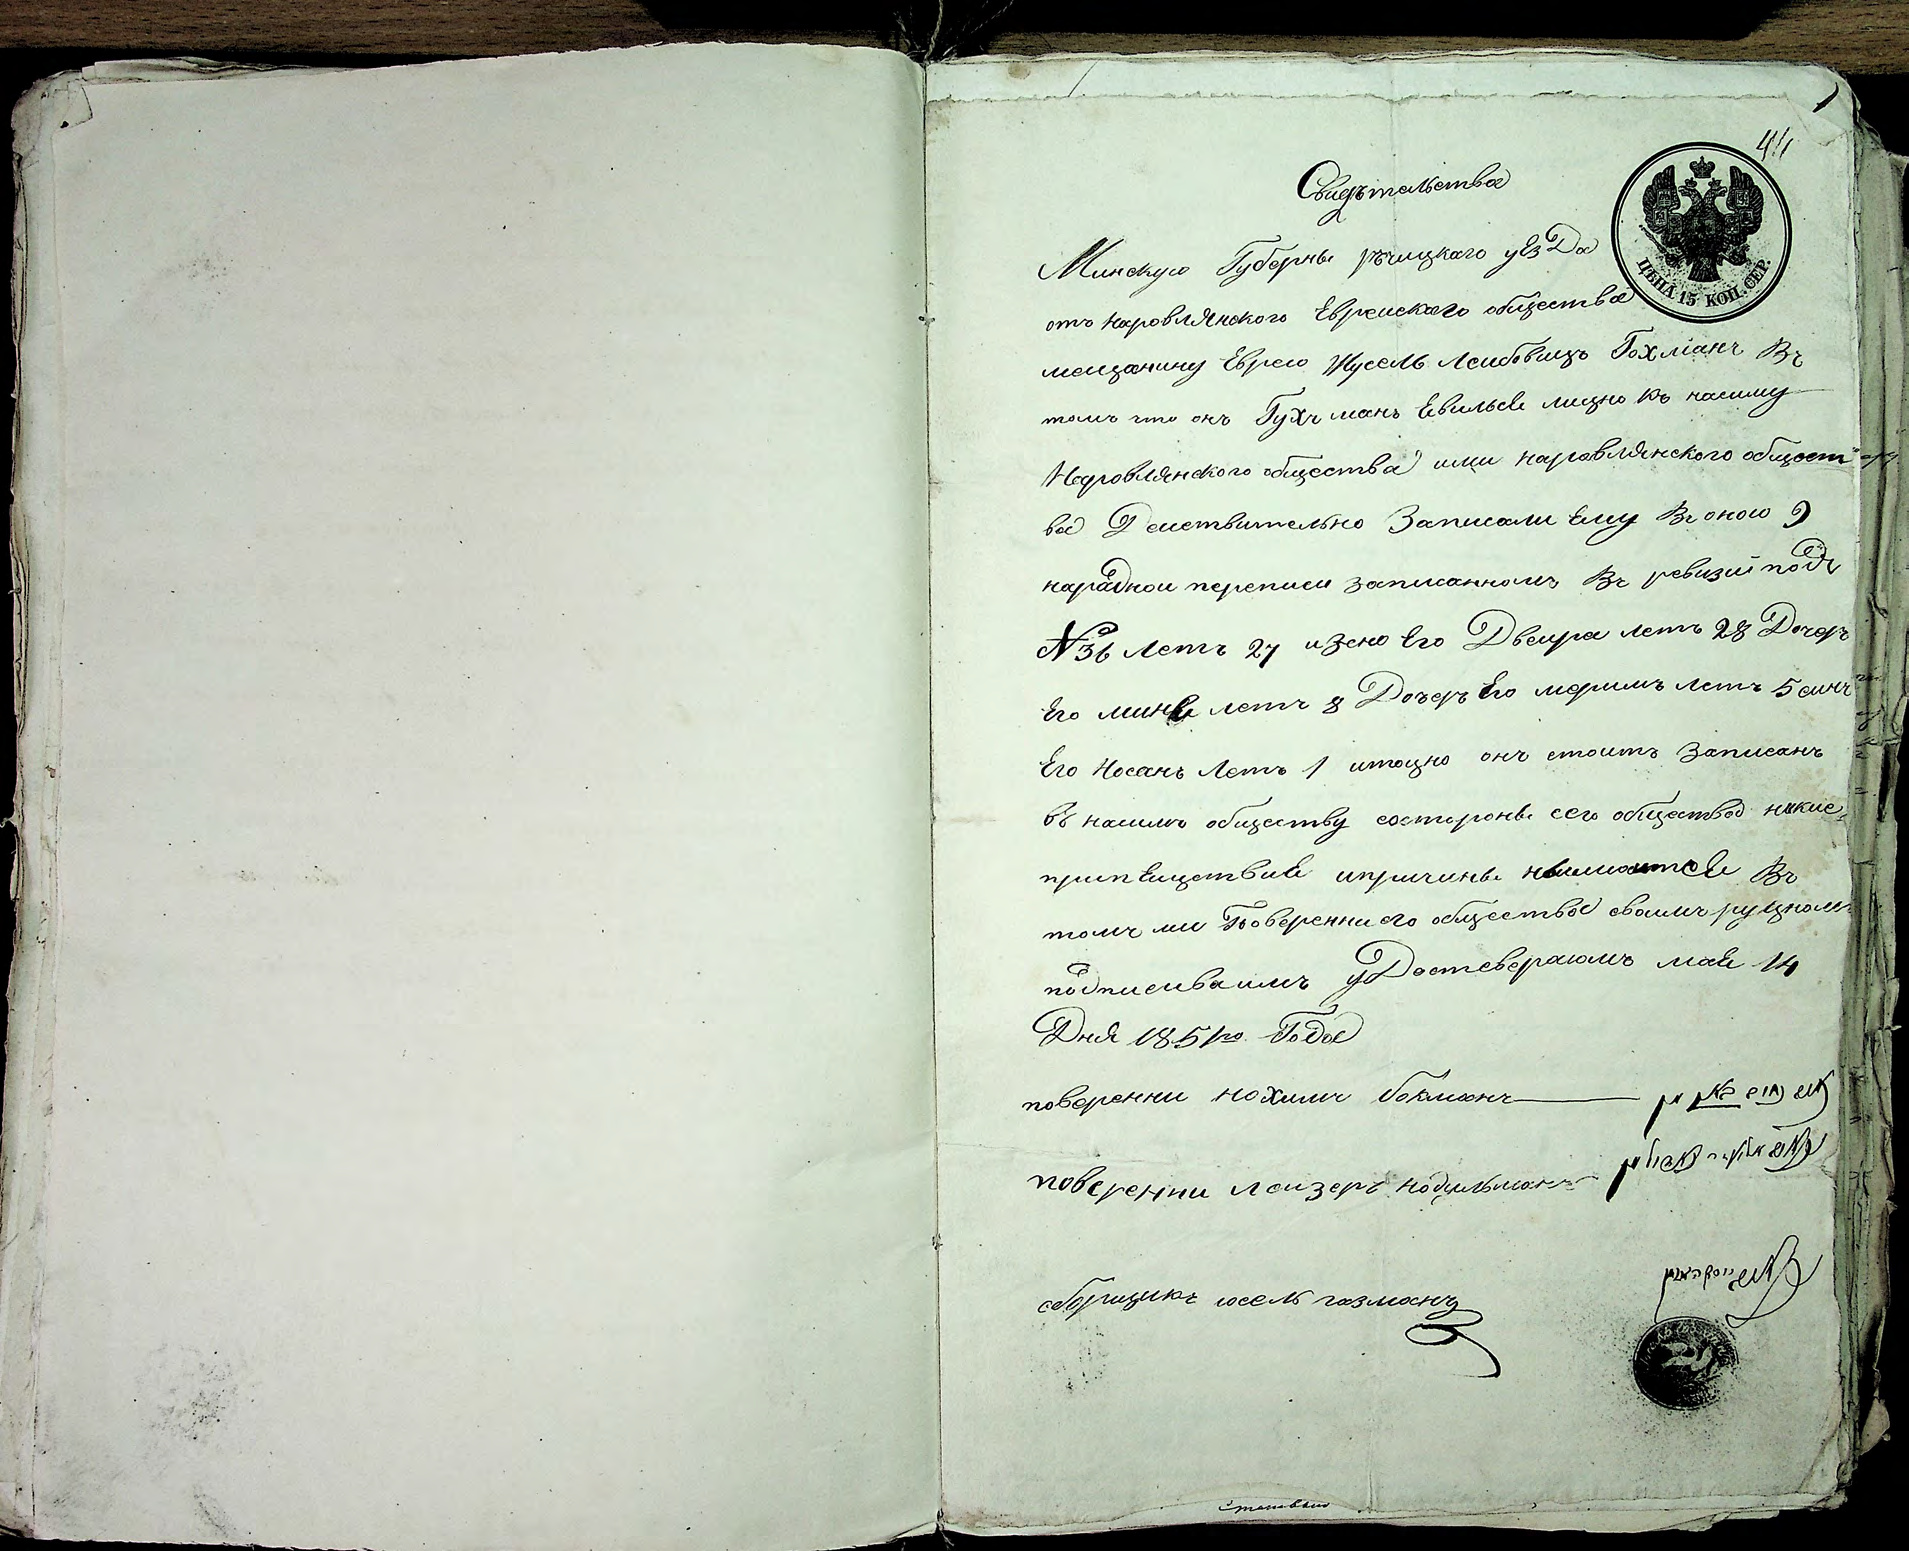 44
Свидѣтельства
ЦѢНА 15 КОП. СЕР.
Минскую Губерны рѣчицкаго уезДа
отъ наровлянского Еврейскаго общества
мещанину Еврею Жусель Леибовицъ Гохманъ Въ
томъ что онъ Гухъманъ Евильсе лицно къ нашиму
Неровлянского общества ими наровлянского общест
ва Деиствительно Записали Ему Въ оною 9
народнои переписи записанномъ Въ ревизии подъ
№ 36 Летъ 27 изено Его Двеира летъ 28 Дочеръ
Его минѣ летъ 8 Дочеръ Его меримъ летъ 5 синъ
Его Носанъ Летъ 1 итоцно онъ стоитъ Записанъ
въ нашимъ обществу состороны сего общества никие
припЕицствие ипричины неимоится Въ
томъ ми Поверенниего общества своимъ руцномъ
подписиваимъ уДостовераюмъ маЕ 14
Дня 1851го Года
поверенни нохимъ бокманъ
поверенни леизеръ нодильманъ
сборщикъ иосель газманъ